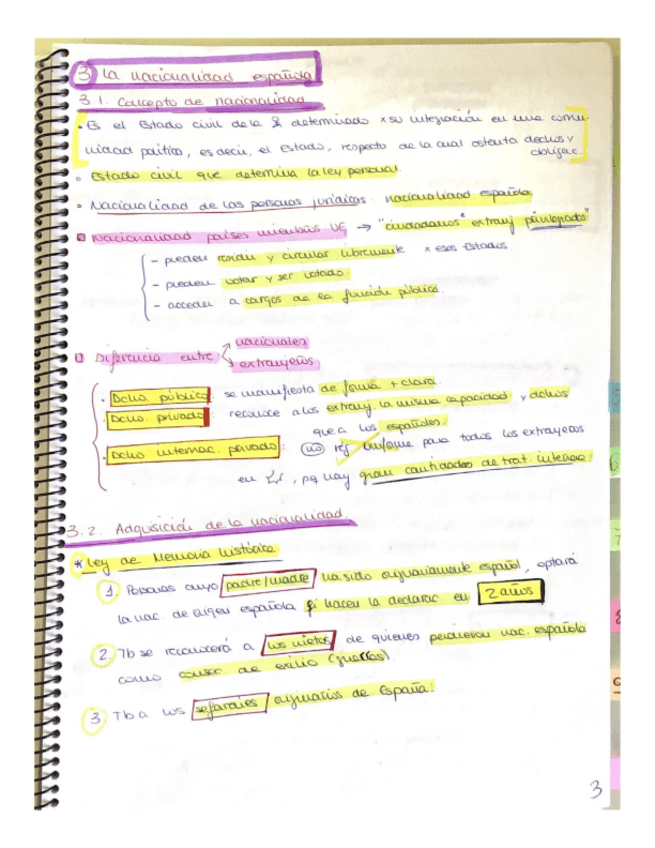 3 La nacionalidad española
3.1. Concepto de nacionalidad
• Es el Estado civil de la determinado x su integración en una comu-
nidad política, es decir, el estado, respecto de la cual ostenta dechos y
obligac.
• Estado civil que determina la ley personal.
• Nacionalidad de las personas jurídicas: nacionalidad española
Nacionalidad países miembros UE → "ciudadanos" extranj privilegiados"
- pueden residir y circular libremente x esos Estados
- pueden votar y ser votado.
- acceden a cargos de la función pública.
Diferencia entre nacionales
extranjeros
• Dcho. público: se manifiesta de forma + clara.
• Dcho. privado: reconoce a los extranj. la misma capacidad y dchos
que a los españoles.
• Dcho internac. privado: no rég. uniforme para todos los extranjeros
en, pq hay gran cantidades de trat. internac.
3.2. Adquisición de la nacionalidad
* Ley de Memoria histórica
1. Personas cuyo padre/madre ha sido originariamente español, optará
la nac. de origen española si hacen la declarac. en 2 años
2. Tb se reconocerá a los nietos de quienes perdieron nac. española
como consec. de exilio (guerras).
3 Tb a los sefardíes originarios de España.
3